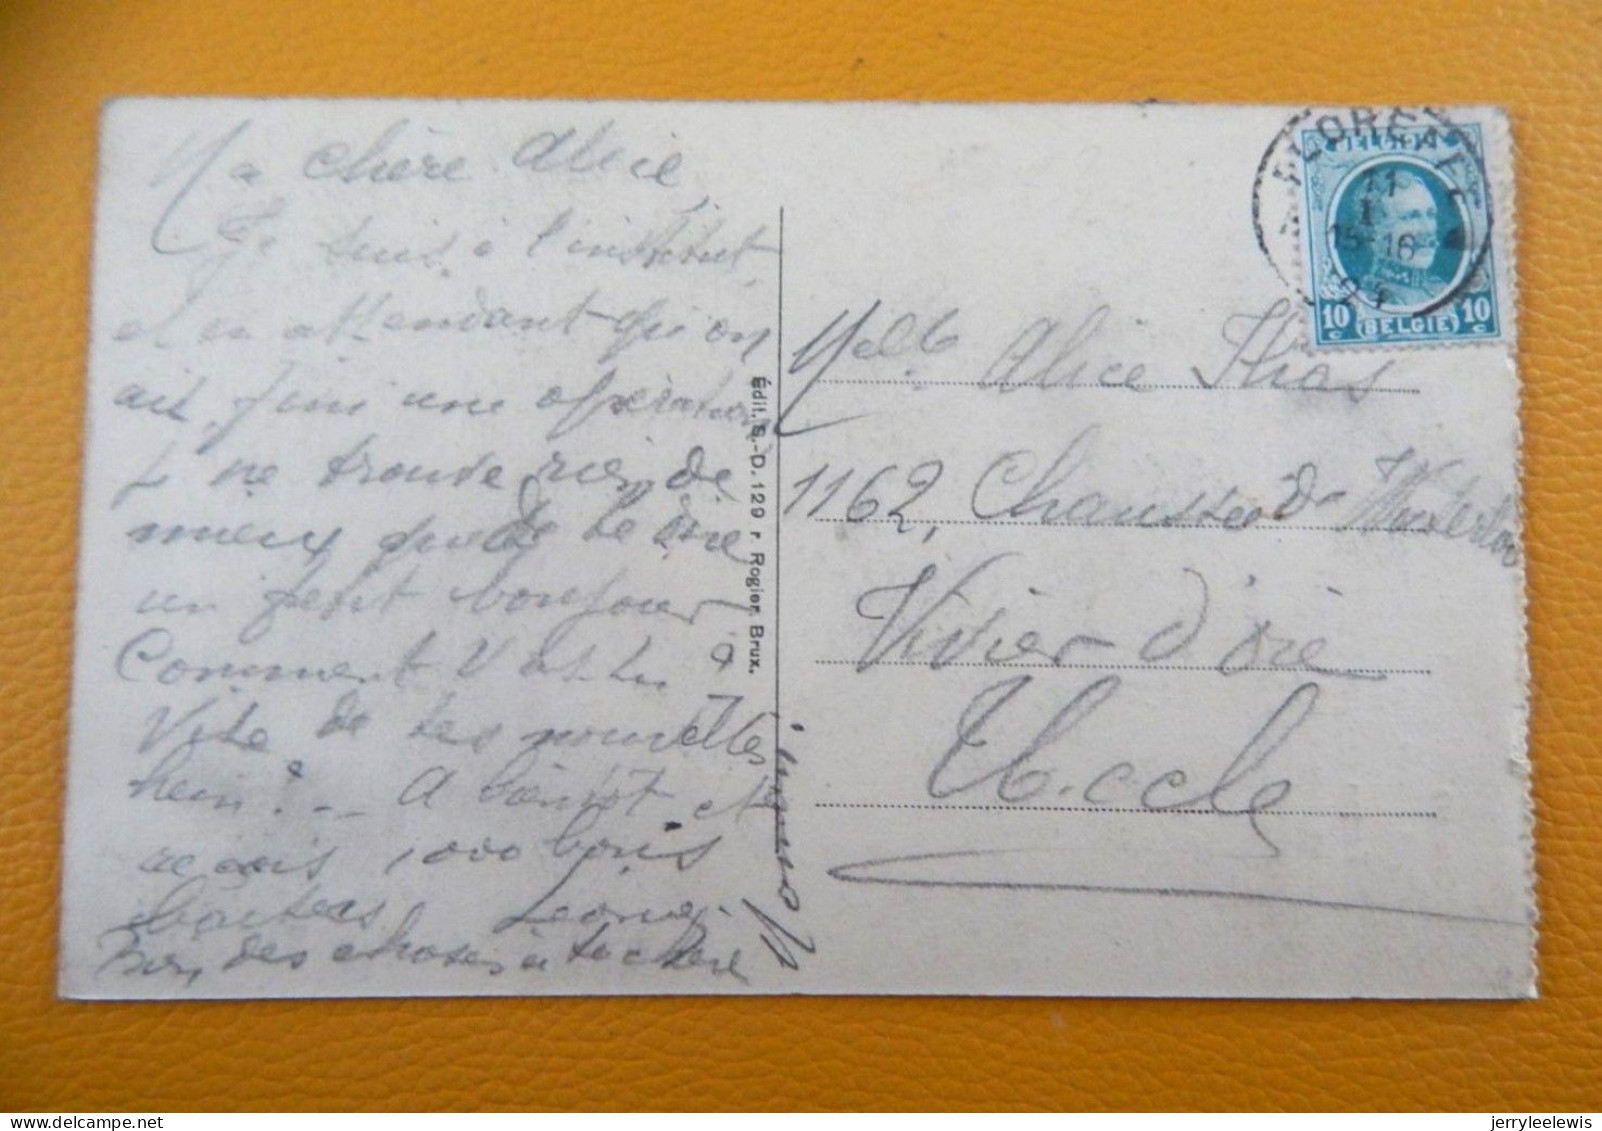 Ma chère Alice,
Je suis à l'institut,
et en attendant qu'on
ait fini une opération
je ne trouve rien de
mieux que de te dire
un petit bonjour
Comment vas-tu ?
Vite de tes nouvelles
hein ? - A bientôt et
reçois 1000 bons
baisers Leonie.
Bien des choses à ta chère
Maman !
Édit. S.-D. 129 r. Rogier. Brux.
FLORENNES
11
I
15-16
24
BELGIQUE
10 c (BELGIE) 10 c
Melle Alice Thas
1162, Chaussée de Waterloo
Vivier d'oie
Uccle
jerryleelewis